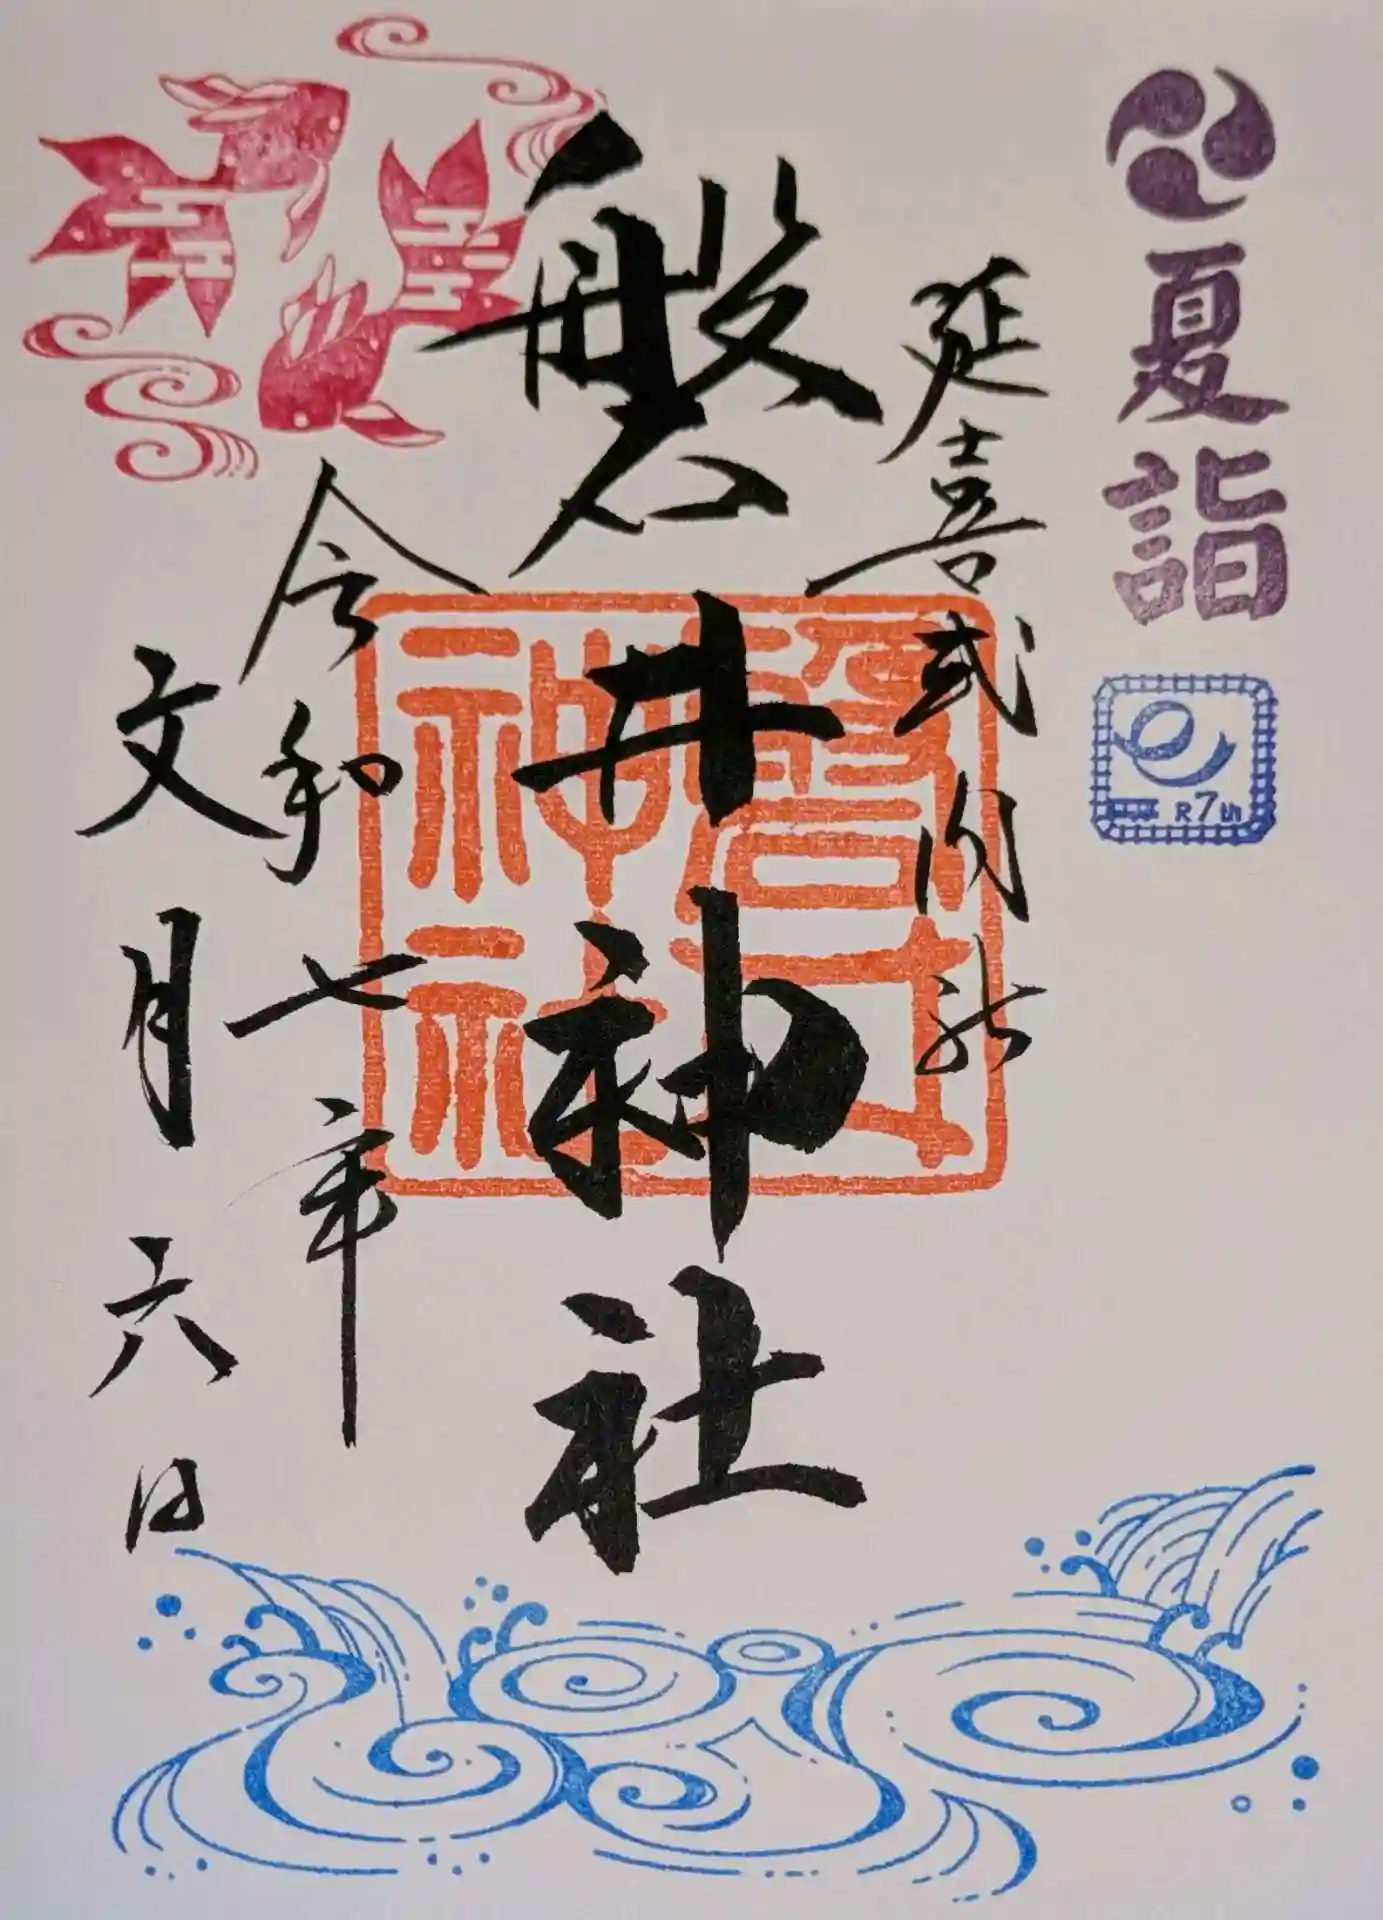 夏詣
R7th
延喜式内社
磐井神社
磐井
神社
令和七年
文月六日